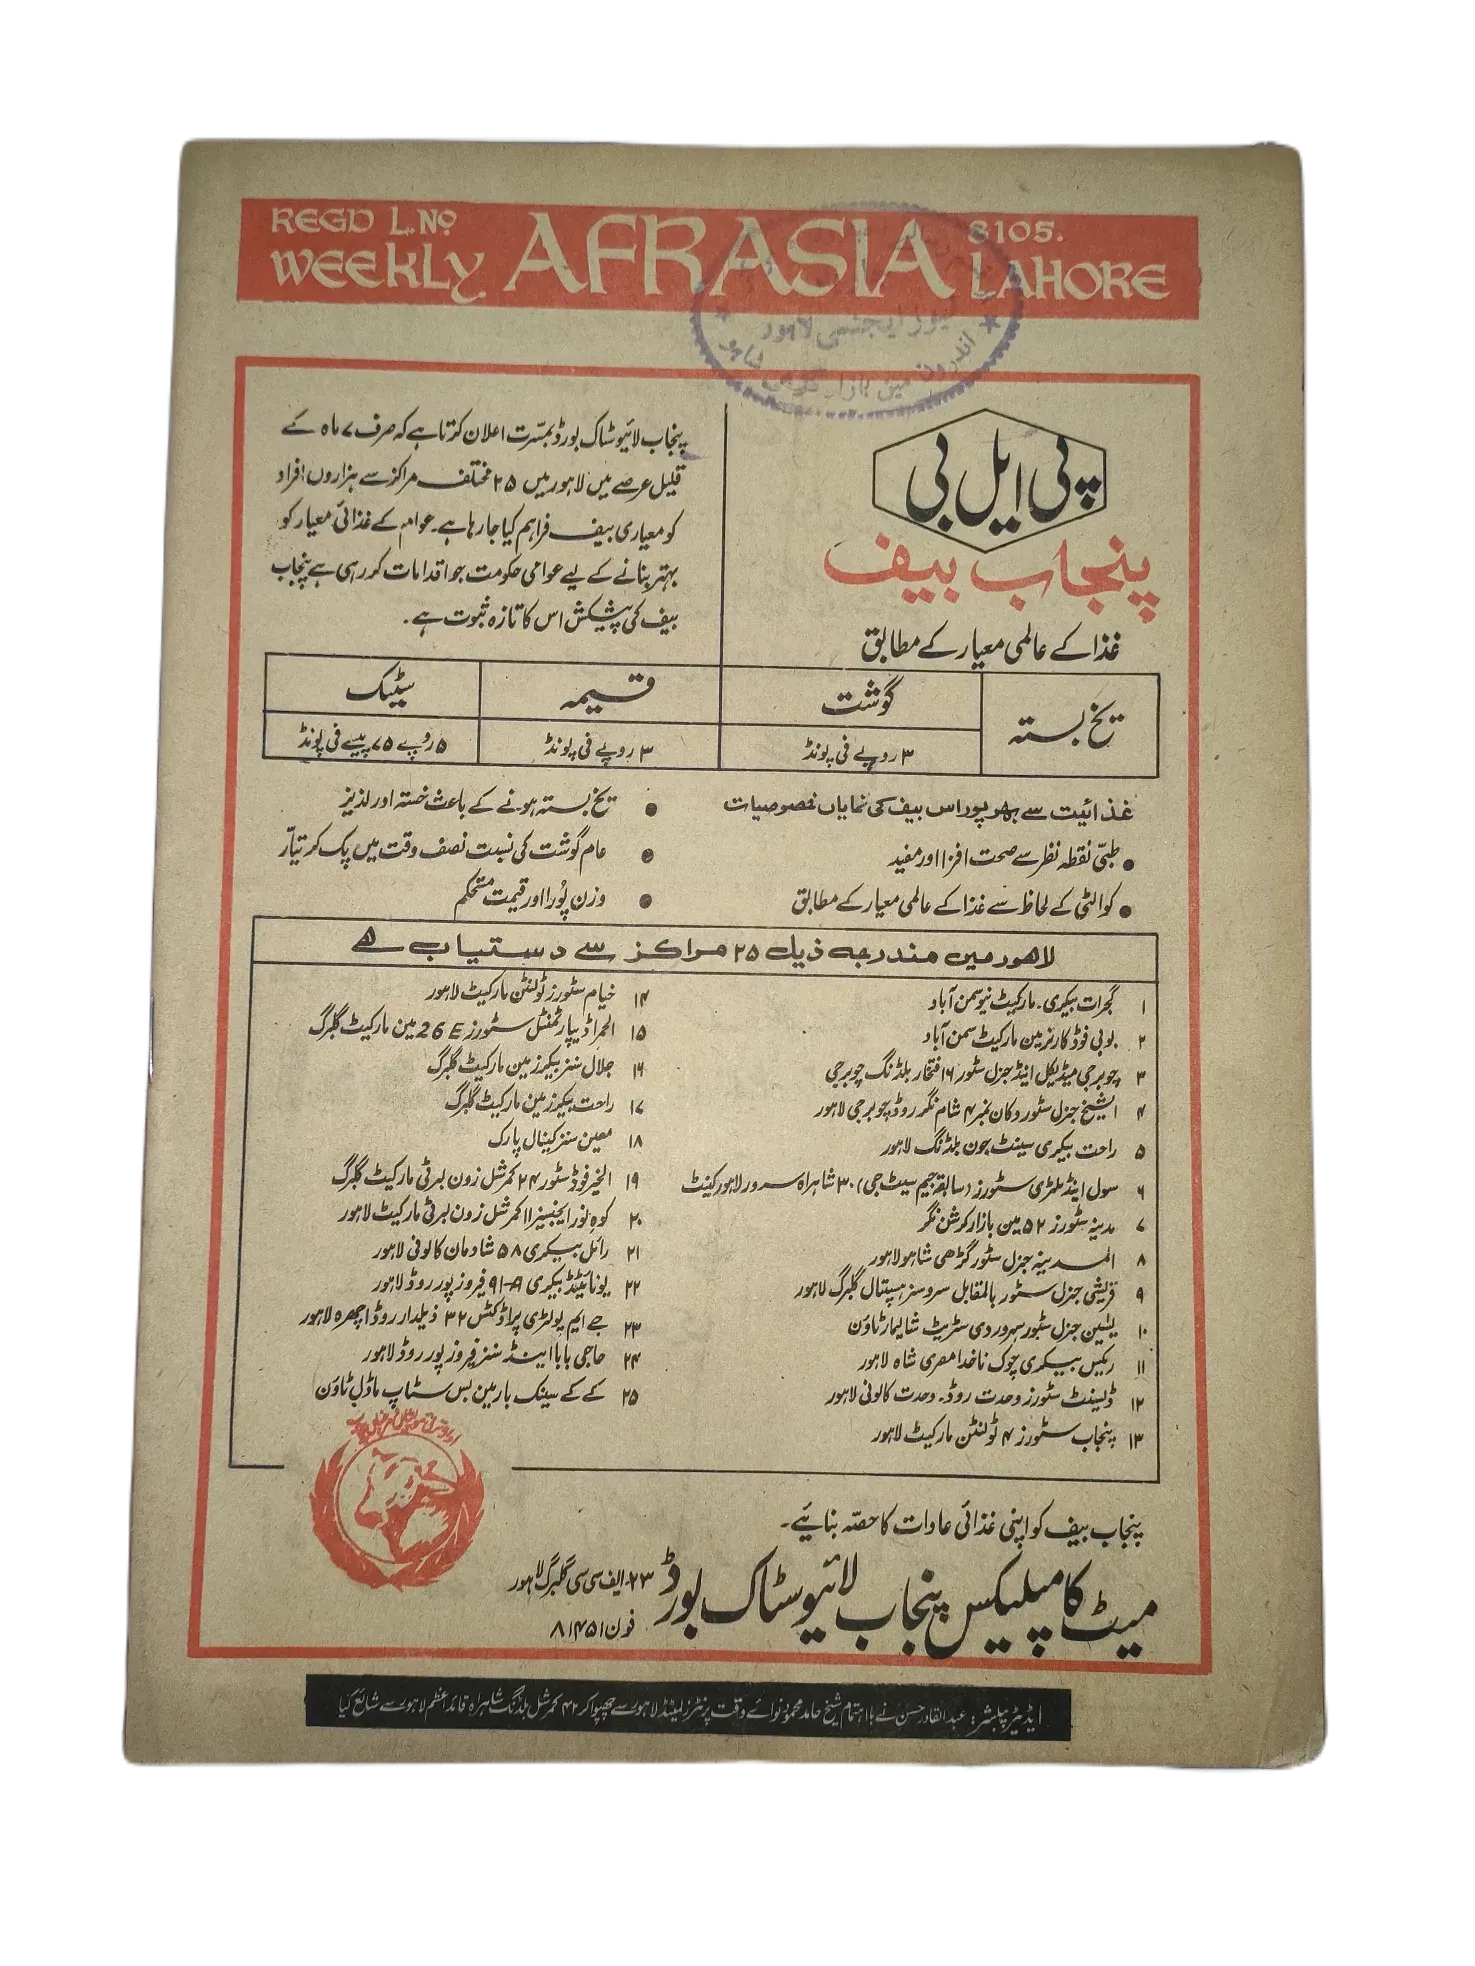 REGD L.No 8105.
WEEKLY AFRASIA LAHORE
نیوز ایجنسی لاہور
اندرون مین بازار گڑھی شاہو
پی ایل بی
پنجاب بیف
غذا کے عالمی معیار کے مطابق
پنجاب لائیوسٹاک بورڈ بمسّرت اعلان کرتا ہے کہ صرف ۷ ماہ کے
قلیل عرصے میں لاہور میں ۲۵ مختلف مراکز سے ہزاروں افراد
کو معیاری بیف فراہم کیا جا رہا ہے۔ عوام کے غذائی معیار کو
بہتر بنانے کے لیے عوامی حکومت جو اقدامات کر رہی ہے پنجاب
بیف کی پیشکش اس کا تازہ ثبوت ہے۔
یخ بستہ
گوشت
قیمہ
سٹیک
۳ روپے فی پونڈ
۳ روپے فی پونڈ
۵ روپے ۷۵ پیسے فی پونڈ
غذائیت سے بھرپور اس بیف کی نمایاں خصوصیات
● طبّی نقطہ نظر سے صحت افزا اور مفید
● کوالٹی کے لحاظ سے غذا کے عالمی معیار کے مطابق
● یخ بستہ ہونے کے باعث خستہ اور لذیز
● عام گوشت کی نسبت نصف وقت میں پک کر تیاّر
● وزن پُورا اور قیمت مستحکم
لاہور میں مندرجہ ذیل ۲۵ مراکز سے دستیاب ہے
۱ گجرات بیکری۔ مارکیٹ نیو سمن آباد
۲ بوبی فوڈ کارنر مین مارکیٹ سمن آباد
۳ چوبرجی میڈیکل اینڈ جنرل سٹور ۱۶ افتخار بلڈنگ چوبرجی
۴ الشیخ جنرل سٹور دکان نمبر ۴ شام نگر روڈ چوبرجی لاہور
۵ راحت بیکری سینٹ جون بلڈنگ لاہور
۶ سول اینڈ ملٹری سٹورز (سابقہ جیم سیٹ جی) ۳۰ شاہراہ سرور لاہور کینٹ
۷ مدینہ سٹورز ۵۲ مین بازار کرشن نگر
۸ المدینہ جنرل سٹور گڑھی شاہو لاہور
۹ قریشی جنرل سٹور بالمقابل سروسز ہسپتال گلبرگ لاہور
۱۰ یٰسین جنرل سٹور سہروردی سٹریٹ شالیمار ٹاؤن
۱۱ ریکس بیکری چوک ناخدا مصری شاہ لاہور
۱۲ ڈیسنٹ سٹورز وحدت روڈ۔ وحدت کالونی لاہور
۱۳ پنجاب سٹورز ۴ ٹولنٹن مارکیٹ لاہور
۱۴ خیام سٹورز ٹولنٹن مارکیٹ لاہور
۱۵ الحمرا ڈیپارٹمنٹل سٹورز 26E مین مارکیٹ گلبرگ
۱۶ جلال سنز بیکرز مین مارکیٹ گلبرگ
۱۷ راحت بیکرز مین مارکیٹ گلبرگ
۱۸ معین سنز کینال پارک
۱۹ الخیر فوڈ سٹور ۲۴ کمرشل زون لبرٹی مارکیٹ گلبرگ
۲۰ کوہ نور ایجنسیز ۱۱ کمرشل زون لبرٹی مارکیٹ لاہور
۲۱ رائل بیکری ۵۸ شادمان کالونی لاہور
۲۲ یونائیٹڈ بیکری 91-A فیروز پور روڈ لاہور
۲۳ جے ایم پولٹری پراڈکٹس ۳۲ ذیلدار روڈ اچھرہ لاہور
۲۴ حاجی بابا اینڈ سنز فیروز پور روڈ لاہور
۲۵ کے کے سینک بار مین بس سٹاپ ماڈل ٹاؤن
پنجاب بیف کو اپنی غذائی عادات کا حصّہ بنائیے۔
میٹ کامپلیکس پنجاب لائیوسٹاک بورڈ ۲۳۔ایف سی سی گلبرگ لاہور
فون ۸۱۴۵۱
ایڈیٹر پبلشر: عبدالقادر حسن نے باہتمام شیخ حامد محمود نوائے وقت پرنٹرز لمیٹڈ لاہور سے چھپوا کر ۴۲ کمرشل بلڈنگ شاہراہ قائداعظم لاہور سے شائع کیا